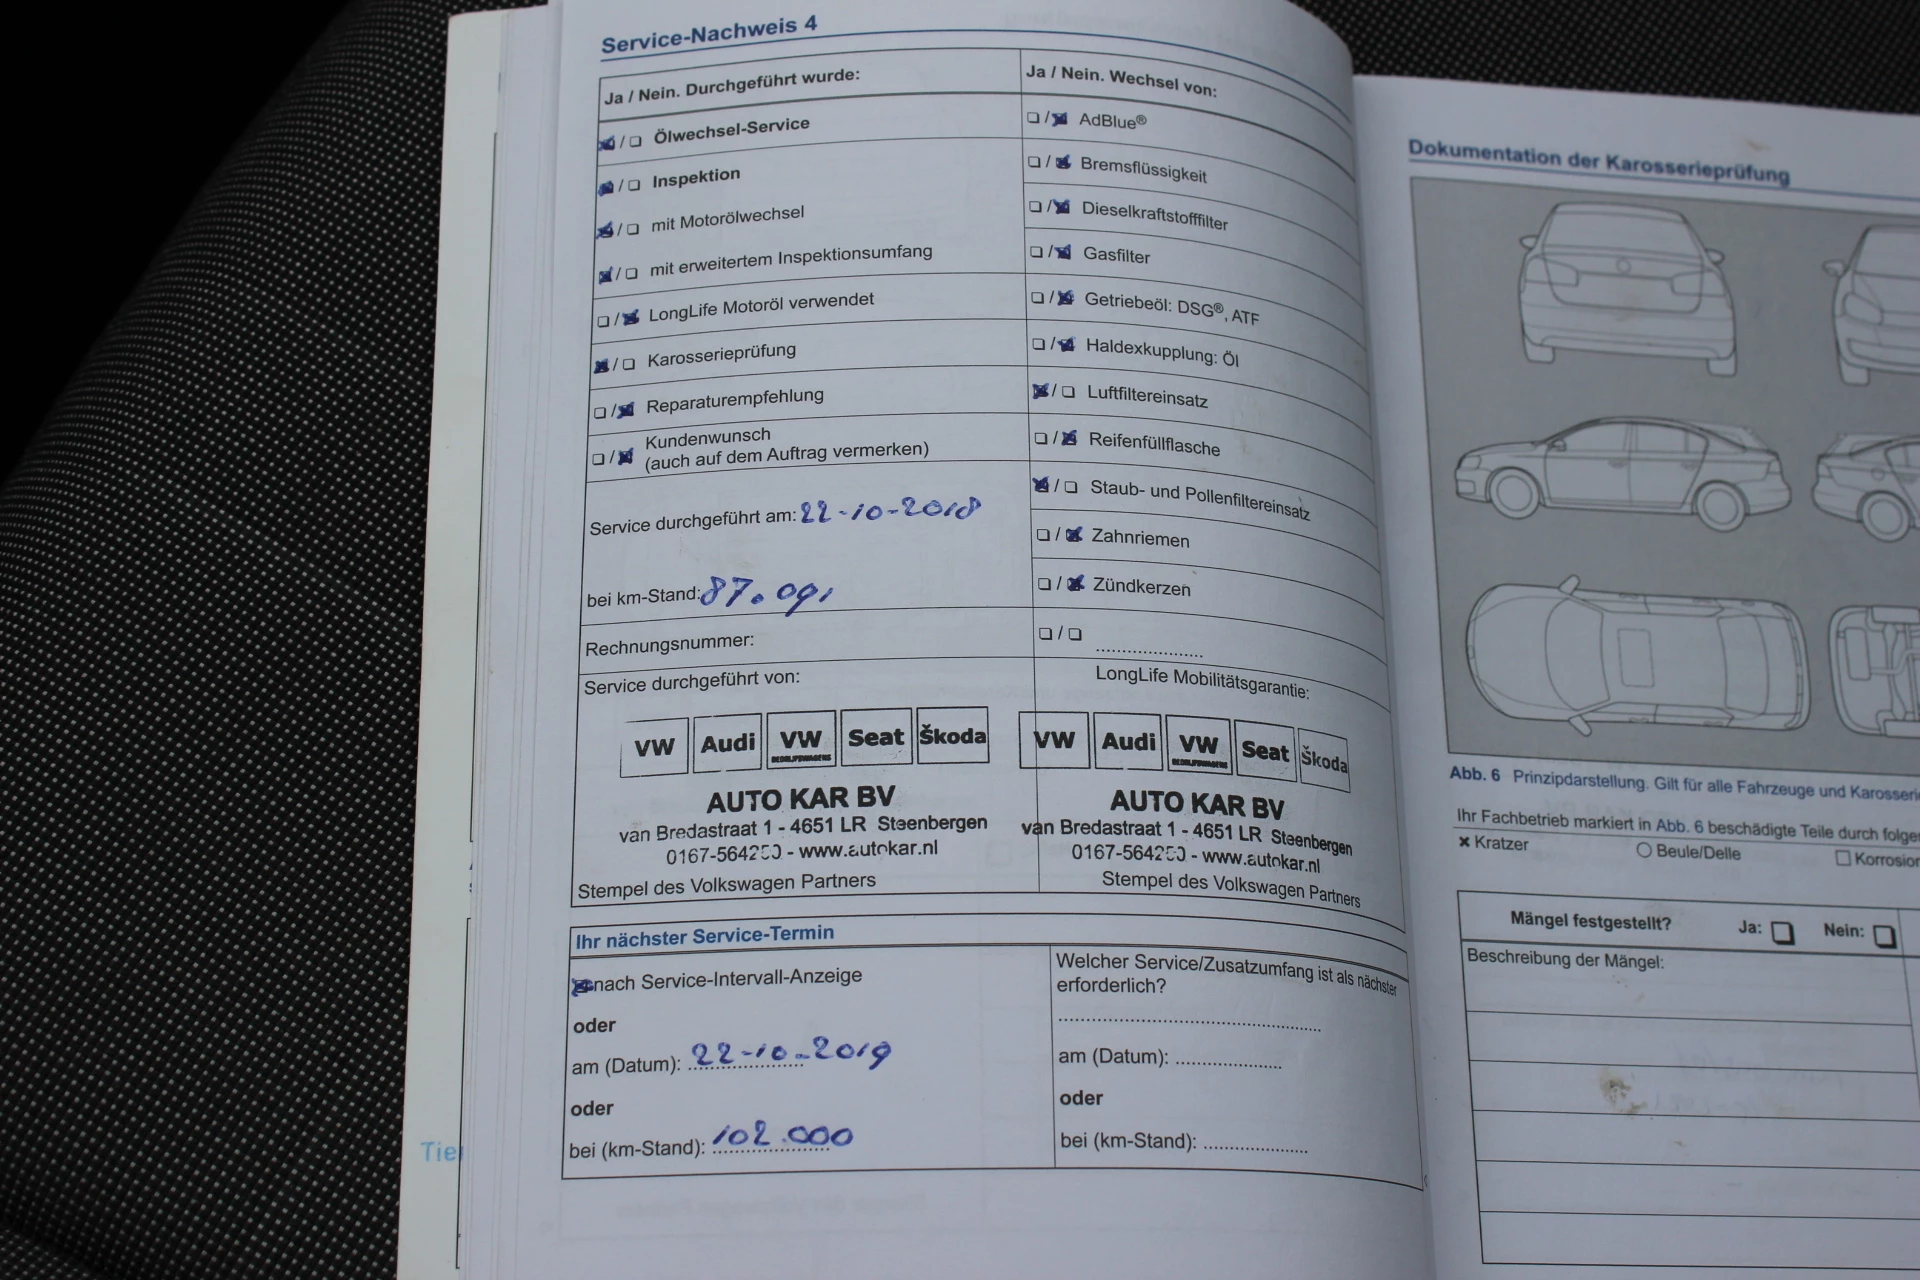 Service-Nachweis 4
Ja / Nein. Durchgeführt wurde:
Ölwechsel-Service
Inspektion
mit Motorölwechsel
mit erweitertem Inspektionsumfang
LongLife Motoröl verwendet
Karosserieprüfung
Reparaturempfehlung
Kundenwunsch
(auch auf dem Auftrag vermerken)
Service durchgeführt am: 22-10-2018
bei km-Stand: 87.091
Rechnungsnummer:
Service durchgeführt von:
VW Audi VW Seat Škoda
BEDRIJFSWAGENS
AUTO KAR BV
van Bredastraat 1 - 4651 LR Steenbergen
0167-564250 - www.autokar.nl
Stempel des Volkswagen Partners
Ja / Nein. Wechsel von:
AdBlue®
Bremsflüssigkeit
Dieselkraftstofffilter
Gasfilter
Getriebeöl: DSG®, ATF
Haldexkupplung: Öl
Luftfiltereinsatz
Reifenfüllflasche
Staub- und Pollenfiltereinsatz
Zahnriemen
Zündkerzen
LongLife Mobilitätsgarantie:
VW Audi VW Seat Škoda
BEDRIJFSWAGENS
AUTO KAR BV
van Bredastraat 1 - 4651 LR Steenbergen
0167-564250 - www.autokar.nl
Stempel des Volkswagen Partners
Ihr nächster Service-Termin
nach Service-Intervall-Anzeige
oder
am (Datum): 22-10-2019
oder
bei (km-Stand): 102.000
Welcher Service/Zusatzumfang ist als nächster
erforderlich?
am (Datum):
oder
bei (km-Stand):
Dokumentation der Karosserieprüfung
Abb. 6 Prinzipdarstellung. Gilt für alle Fahrzeuge und
Ihr Fachbetrieb markiert in Abb. 6 beschädigte Teile durch
Kratzer
Beule/Delle
Mängel festgestellt? Ja: Nein:
Beschreibung der Mängel: